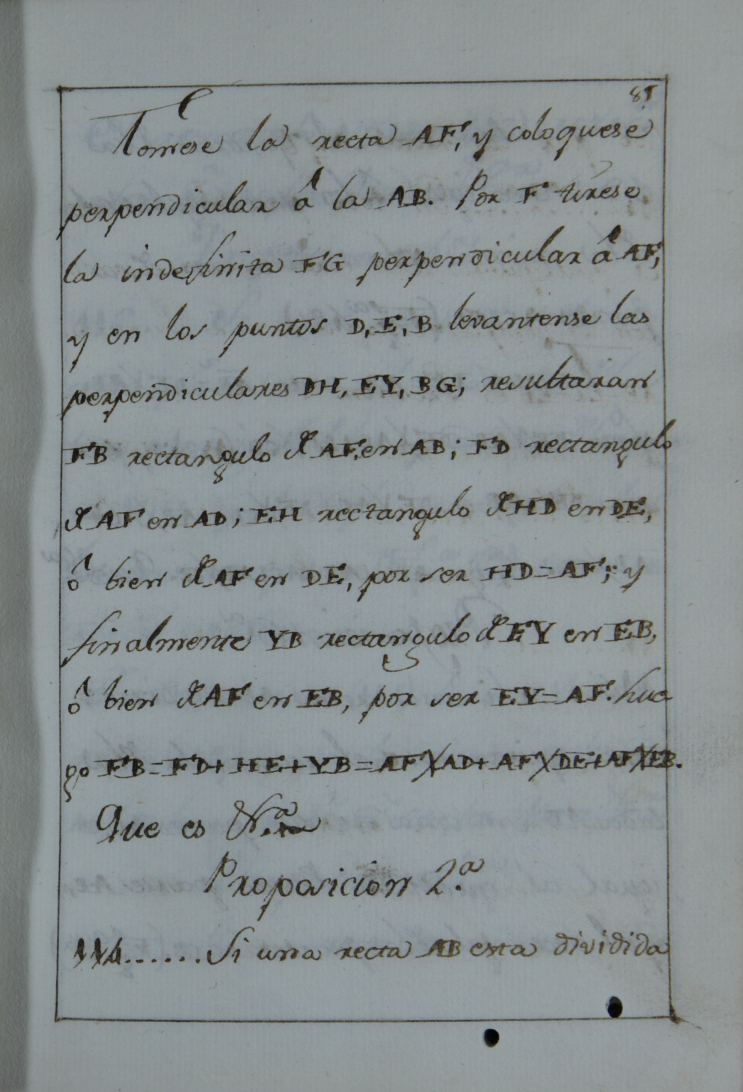 81
Tomese la recta AF, y coloquese
perpendicular â la AB. Por F tirese
la indefinita FG perpendicular â AF;
y en los puntos D, E, B levantense las
perpendiculares DH, EY, BG; resultaran
FB rectangulo d AF, en AB; FD rectangulo
d AF en AD; EH rectangulo d HD en DE,
ô bien d AF en DE, por ser HD=AF; y
finalmente YB rectangulo d EY en EB,
ô bien d AF en EB, por ser EY=AF. Lue
go FB=FD+HE+YB=AF×AD+AF×DE+AF×EB.
Que es
Proposicion 2.ª
114......Si una recta AB esta dividida